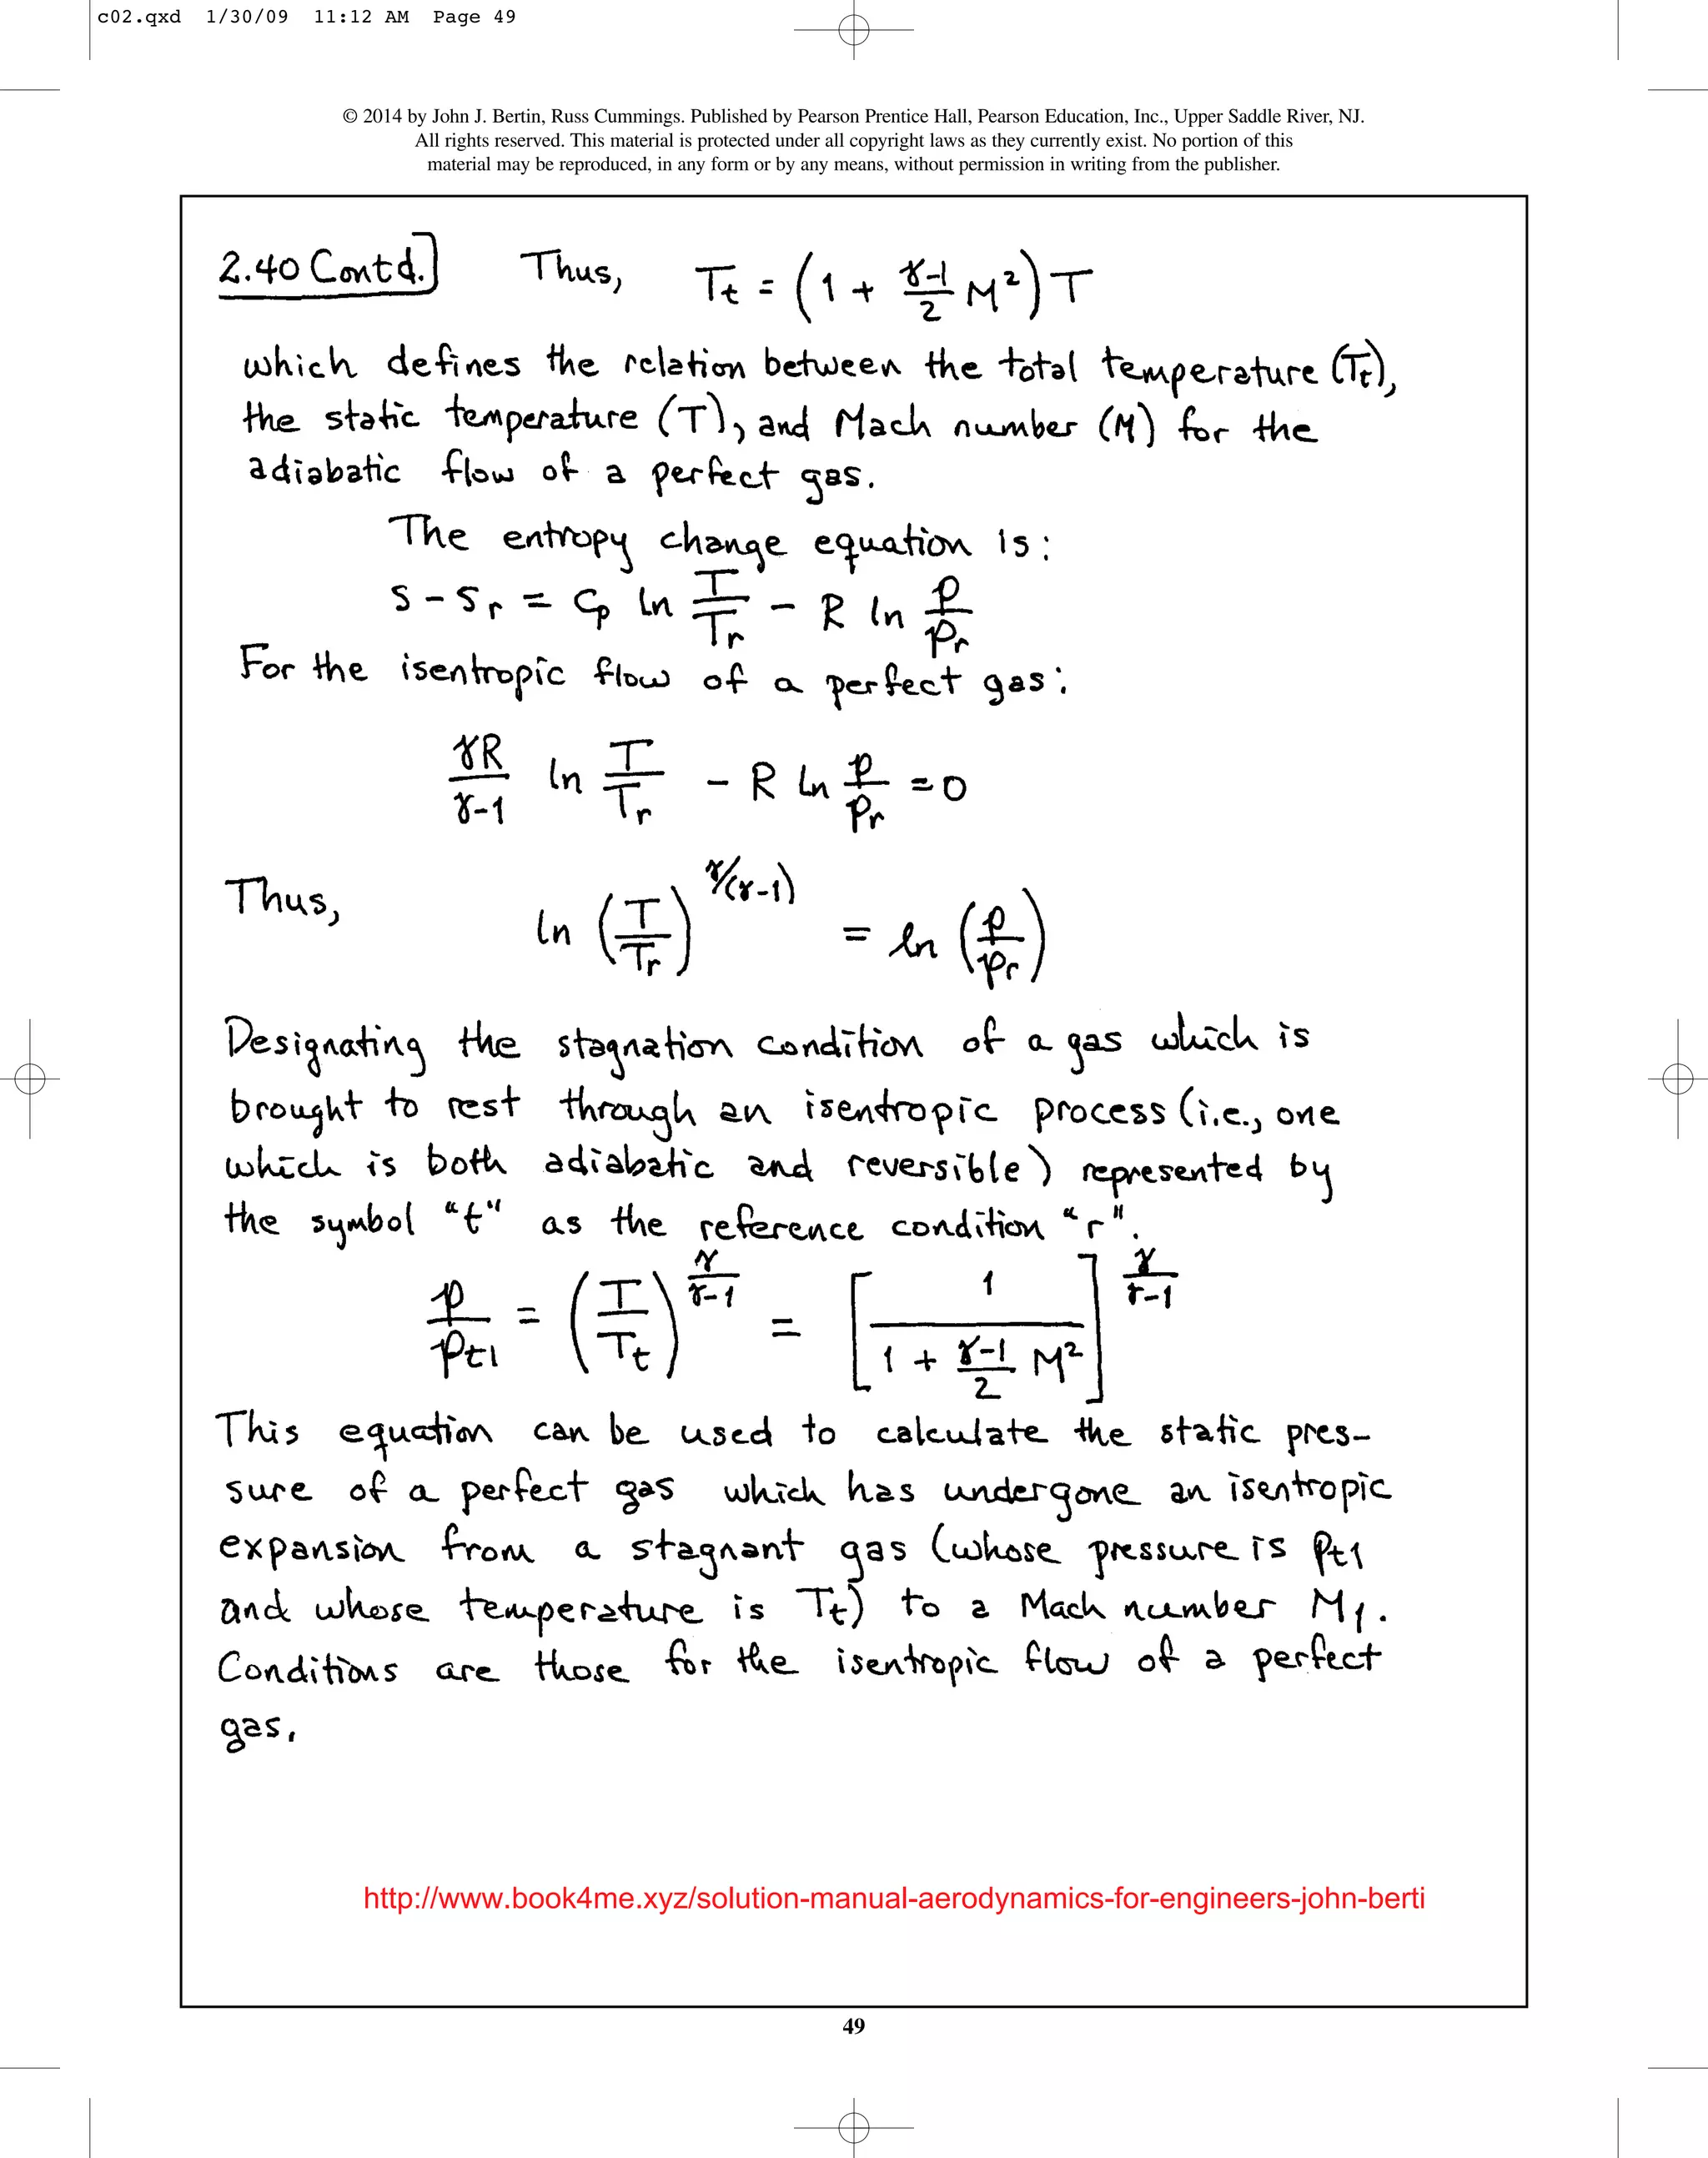 c02.qxd 1/30/09 11:12 AM Page 49
© 2014 by John J. Bertin, Russ Cummings. Published by Pearson Prentice Hall, Pearson Education, Inc., Upper Saddle River, NJ.
All rights reserved. This material is protected under all copyright laws as they currently exist. No portion of this
material may be reproduced, in any form or by any means, without permission in writing from the publisher.
2.40 Contd.] Thus, T_t = (1 + (γ-1)/2 M²) T
which defines the relation between the total temperature (T_t),
the static temperature (T), and Mach number (M) for the
adiabatic flow of a perfect gas.
The entropy change equation is:
s - s_r = c_p ln T/T_r - R ln p/p_r
For the isentropic flow of a perfect gas:
γR/(γ-1) ln T/T_r - R ln p/p_r = 0
Thus, ln (T/T_r)^(γ/(γ-1)) = ln (p/p_r)
Designating the stagnation condition of a gas which is
brought to rest through an isentropic process (i.e., one
which is both adiabatic and reversible) represented by
the symbol "t" as the reference condition "r".
p/p_t1 = (T/T_t)^(γ/(γ-1)) = [1/(1 + (γ-1)/2 M²)]^(γ/(γ-1))
This equation can be used to calculate the static pres-
sure of a perfect gas which has undergone an isentropic
expansion from a stagnant gas (whose pressure is p_t1
and whose temperature is T_t) to a Mach number M_1.
Conditions are those for the isentropic flow of a perfect
gas.
http://www.book4me.xyz/solution-manual-aerodynamics-for-engineers-john-berti
49